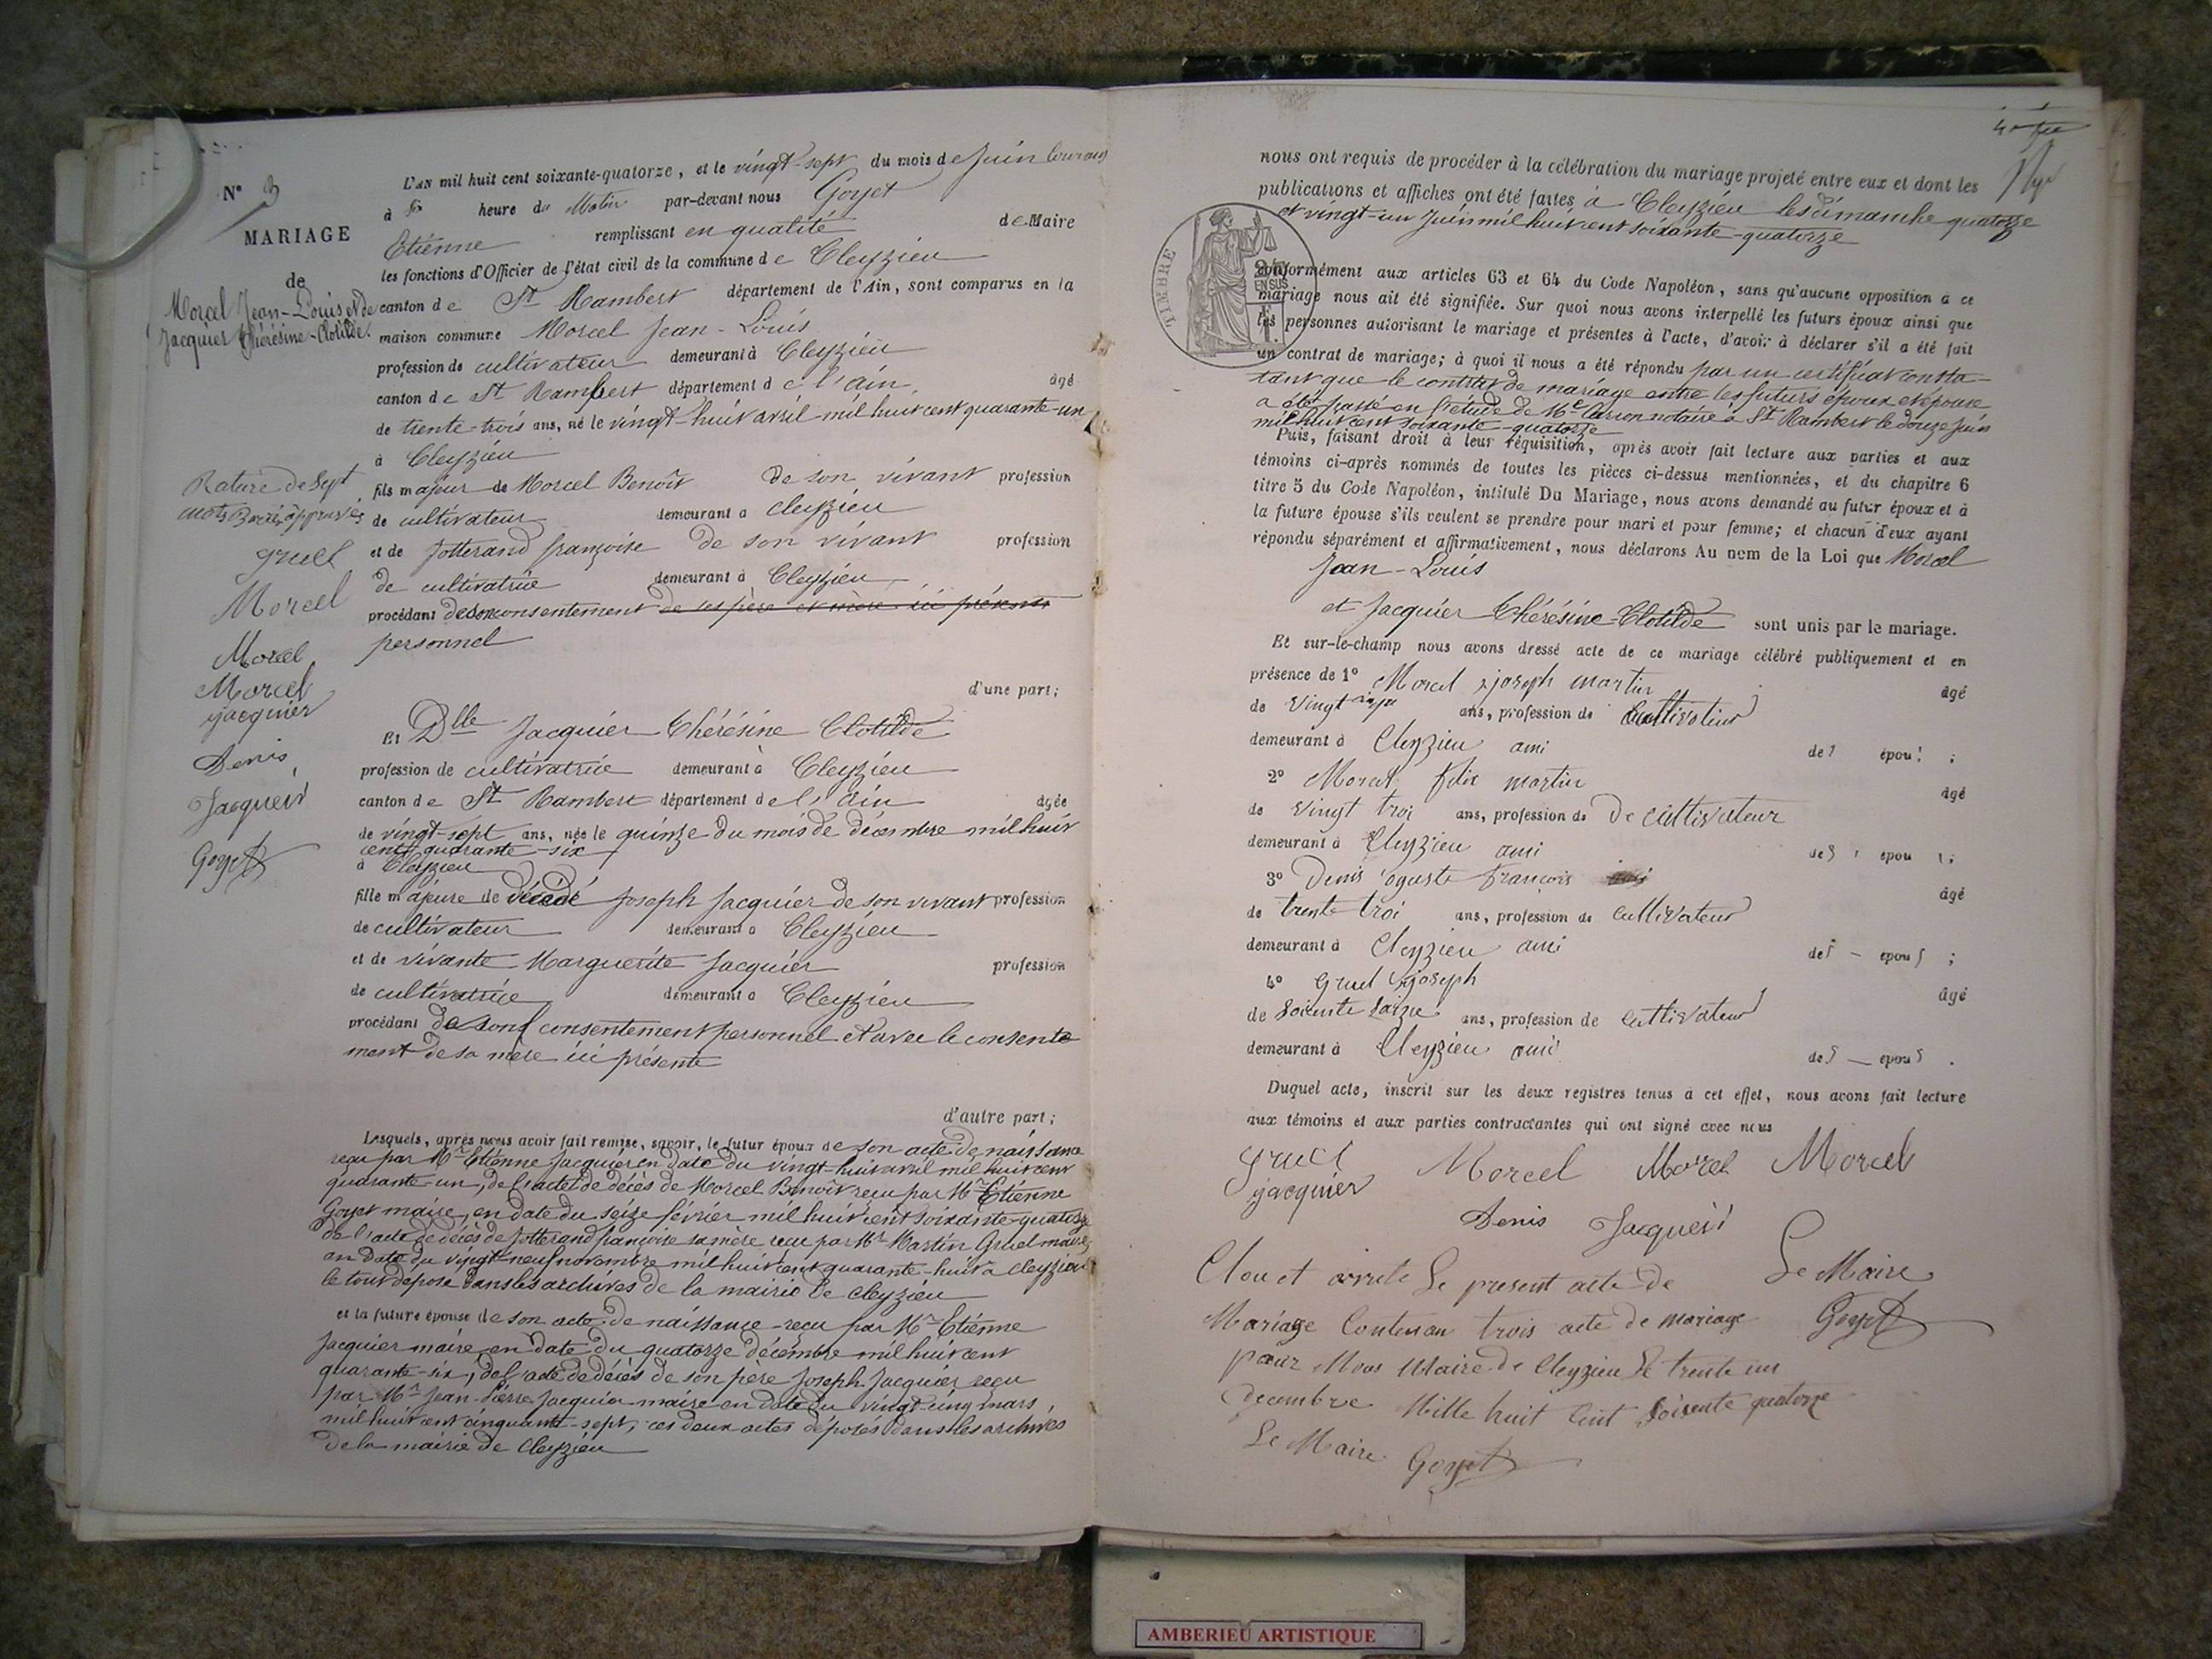 N° 3
MARIAGE
de
Morcel Jean-Louis et de
Jacquier Thérésine-Clotilde.
Rature de Sept
mots Barrés approuvés
gruel
Morcel
Morcel
Morcel
jacquier
Denis
Jacquier
Goyet
L'an mil huit cent soixante-quatorze, et le vingt-sept du mois de Juin courant
à heure du Matin par-devant nous Goyet
Etienne remplissant en qualité de Maire
les fonctions d'Officier de l'état civil de la commune de Cleyzieu
canton de St Rambert département de l'Ain, sont comparus en la
maison commune Morcel Jean-Louis
profession de cultivateur demeurant à Cleyzieu
canton de St Rambert département de l'ain, âgé
de trente-trois ans, né le vingt-huit avril mil huit cent quarante-un
à Cleyzieu
fils majeur de Morcel Benoît de son vivant profession
de cultivateur demeurant à cleyzieu
et de Jotterand françoise de son vivant profession
de cultivatrice demeurant à Cleyzieu
procédant de son consentement de ses père et mère ici présents
personnel
d'une part;
Et Dlle Jacquier Thérésine Clotilde
profession de cultivatrice demeurant à Cleyzieu
canton de St Rambert département de l'ain âgée
de vingt-sept ans, née le quinze du mois de décembre mil huit
cent quarante-six
à Cleyzieu
fille majeure de décédé Joseph Jacquier de son vivant profession
de cultivateur demeurant à Cleyzieu
et de vivante Marguerite Jacquier profession
de cultivatrice demeurant à Cleyzieu
procédant de son consentement personnel et avec le consente
ment de sa mère ici présente
d'autre part;
Lesquels, après nous avoir fait remise, savoir, le futur époux de son acte de naissance
reçu par Mr Etienne Jacquier en date du vingt-huit avril mil huit cent
quarante-un, de l'acte de décès de Morcel Benoît reçu par Mr Etienne
Goyet maire, en date du seize février mil huit cent soixante-quatorze
de l'acte de décès de Jotterand françoise sa mère reçu par Mr Martin Gruel maire
en date du vingt-neuf novembre mil huit cent quarante-huit a cleyzieu
le tout déposé dans les archives de la mairie de cleyzieu
et la future épouse de son acte de naissance reçu par Mr Etienne
Jacquier maire en date du quatorze décembre mil huit cent
quarante-six, de l'acte de décès de son père Joseph Jacquier reçu
par Mr Jean-Pierre Jacquier maire en date du vingt-cinq mars
mil huit cent cinquante-sept, ces deux actes déposés dans les archives
de la mairie de Cleyzieu
nous ont requis de procéder à la célébration du mariage projeté entre eux et dont les
publications et affiches ont été faites à Cleyzieu les dimanche quatorze
et vingt-un juin mil huit cent soixante-quatorze
TIMBRE
conformément aux articles 63 et 64 du Code Napoléon, sans qu'aucune opposition à ce
mariage nous ait été signifiée. Sur quoi nous avons interpellé les futurs époux ainsi que
les personnes autorisant le mariage et présentes à l'acte, d'avoir à déclarer s'il a été fait
un contrat de mariage; à quoi il nous a été répondu par un certificat consta-
tant que le contrat de mariage entre les futurs époux et épouse
a été passé en l'étude de Me Carron notaire à St Rambert le douze juin
mil huit cent soixante-quatorze
Puis, faisant droit à leur réquisition, après avoir fait lecture aux parties et aux
témoins ci-après nommés de toutes les pièces ci-dessus mentionnées, et du chapitre 6
titre 5 du Code Napoléon, intitulé Du Mariage, nous avons demandé au futur époux et à
la future épouse s'ils veulent se prendre pour mari et pour femme; et chacun d'eux ayant
répondu séparément et affirmativement, nous déclarons Au nom de la Loi que Morcel
Jean-Louis
et Jacquier Thérésine-Clotilde sont unis par le mariage.
Et sur-le-champ nous avons dressé acte de ce mariage célébré publiquement et en
présence de 1° Morcel joseph martin âgé
de Vingt ans, profession de Cultivateur
demeurant à Cleyzieu ami des epou ;
2° Morcel félix martin âgé
de Vingt troi ans, profession de De cultivateur
demeurant à Cleyzieu ami des epou ;
3° Denis oguste françois âgé
de trente troi ans, profession de Cultivateur
demeurant à Cleyzieu ami des epous ;
4° gruel joseph âgé
de Soixente Saize ans, profession de Cultivateur
demeurant à Cleyzieu ami des epous .
Duquel acte, inscrit sur les deux registres tenus à cet effet, nous avons fait lecture
aux témoins et aux parties contractantes qui ont signé avec nous
gruel Morcel Morcel Morcel
jacquier Denis Jacquier
Clou et arrete Le present acte de Le Maire
Mariage Contenan trois acte de mariage Goyet
paur Nous Maire de Cleyzieu Le trente un
decembre Mille huit Cent Soixente quatorze
Le Maire Goyet
AMBERIEU ARTISTIQUE